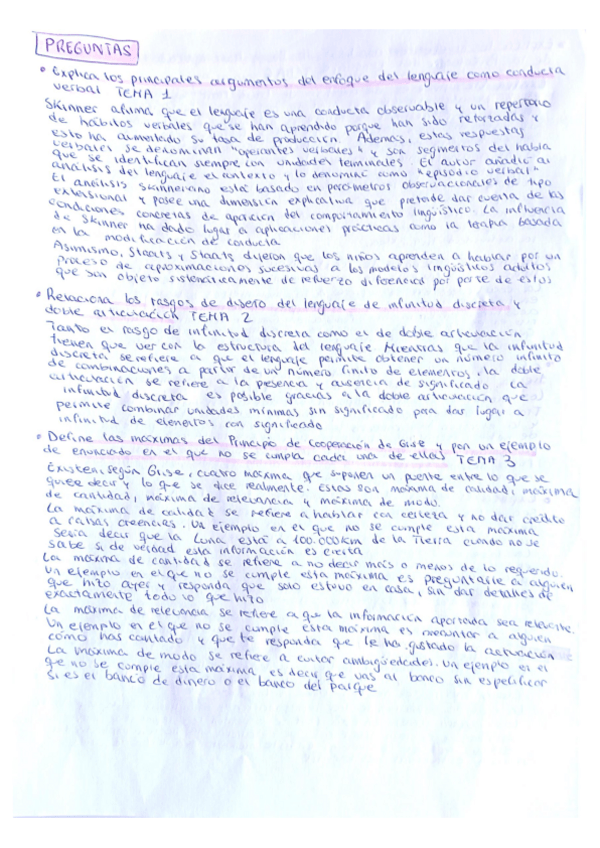 PREGUNTAS
• Explica los principales argumentos del enfoque del lenguaje como conducta
verbal TEMA 1
Skinner afirma que el lenguaje es una conducta observable y un repertorio
de hábitos verbales que se han aprendido porque han sido reforzadas y
esto ha aumentado su tasa de producción. Además, estas respuestas
verbales se denominan "operantes verbales" y son segmentos del habla
que se identifican siempre con unidades terminales. El autor añadió al
análisis del lenguaje el contexto y lo denominó como "episodio verbal"
El análisis skinneriano está basado en parámetros observacionales de tipo
extensional y posee una dimensión explicativa que pretende dar cuenta de las
condiciones concretas de aparición del comportamiento lingüístico. La influencia
de Skinner ha dado lugar a aplicaciones prácticas como la terapia basada
en la modificación de conducta
Asimismo, Staats y Staats dijeron que los niños aprenden a hablar por un
proceso de aproximaciones sucesivas a los modelos lingüísticos adultos
que son objeto sistemáticamente de refuerzo diferencial por parte de estos
• Relaciona los rasgos de diseño del lenguaje de infinitud discreta y
doble articulación TEMA 2
Tanto el rasgo de infinitud discreta como el de doble articulación
tienen que ver con la estructura del lenguaje Mientras que la infinitud
discreta se refiere a que el lenguaje permite obtener un número infinito
de combinaciones a partir de un número finito de elementos, la doble
articulación se refiere a la presencia y ausencia de significado La
infinitud discreta es posible gracias a la doble articulación que
permite combinar unidades mínimas sin significado para dar lugar a
infinitud de elementos con significado
• Define las máximas del Principio de Cooperación de Grise y pon un ejemplo
de enunciado en el que no se cumpla cada una de ellas TEMA 3
Existen, según Grise, cuatro máxima que suponen un puente entre lo que se
quiere decir y lo que se dice realmente. Estas son máxima de calidad, máxima
de cantidad, máxima de relevancia y máxima de modo.
La máxima de calidad se refiere a hablar con certeza y no dar crédito
a falsas creencias. Un ejemplo en el que no se cumple esta máxima
sería decir que la Luna está a 100.000km de la Tierra cuando no se
sabe si de verdad esta información es cierta
La máxima de cantidad se refiere a no decir más o menos de lo requerido.
Un ejemplo en el que no se cumple esta máxima es preguntarle a alguien
que hizo ayer y responda que solo estuvo en casa, sin dar detalles de
exactamente todo lo que hizo
La máxima de relevancia se refiere a que la información aportada sea relevante.
Un ejemplo en el que no se cumple esta máxima es preguntar a alguien
cómo has cantado y que te responda que le ha gustado la actuación
La máxima de modo se refiere a evitar ambigüedades. Un ejemplo en el
que no se cumple esta máxima es decir que vas al banco sin especificar
si es el banco de dinero o el banco del parque